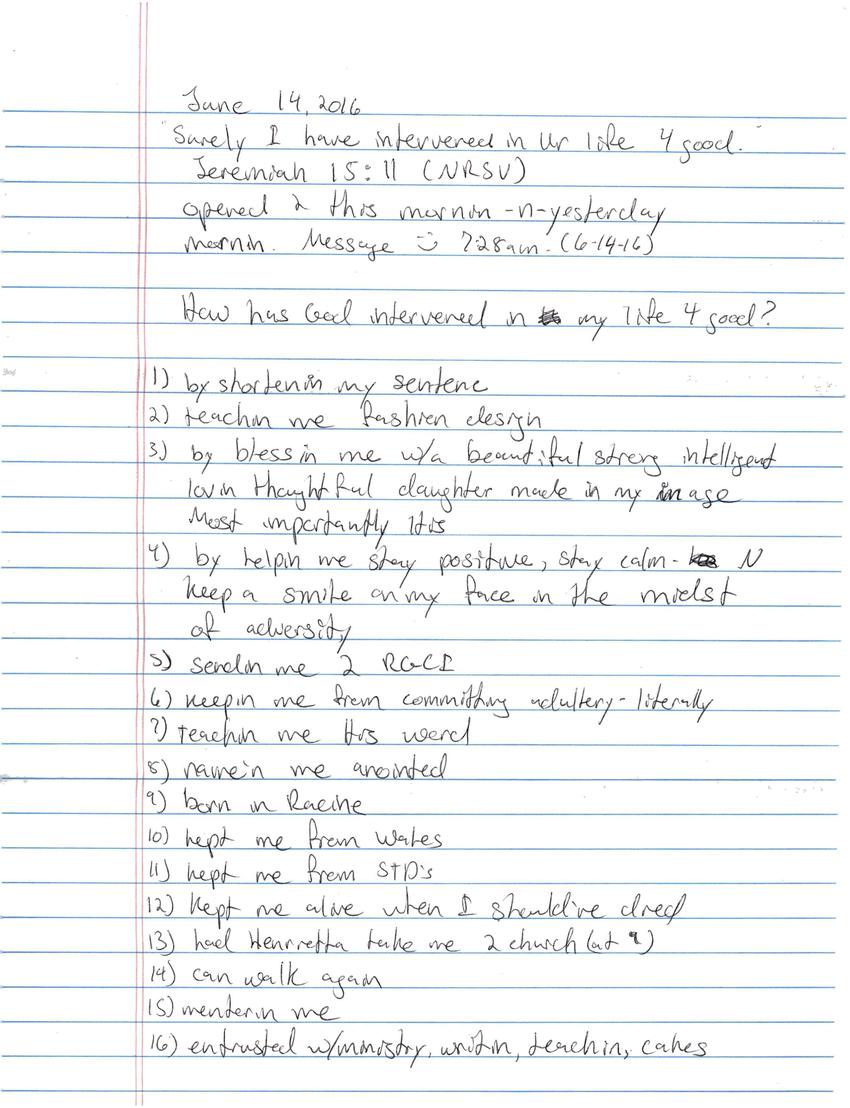 June 14, 2016
"Surely I have intervened in Ur life 4 good."
Jeremiah 15:11 (NRSV)
opened 2 this mornin -n-yesterday
mornin. Message 7:28am. (6-14-16)
How has God intervened in my life 4 good?
1) by shortenin my sentence
2) teachin me fashion design
3) by blessin me w/a beautiful strong intelligent
lovin thoughtful daughter made in my image
Most importantly His
4) by helpin me stay positive, stay calm- N
keep a smile on my face in the midst
of adversity
5) sendin me 2 RGCI
6) keepin me from committing adultery - literally
7) teachin me His word
8) namein me anointed
9) born in Racine
10) kept me from Wales
11) kept me from STD's
12) kept me alive when I should've died
13) had Henrietta take me 2 church (at 9)
14) can walk again
15) mentorin me
16) entrusted w/ministry, writin, teachin, cakes